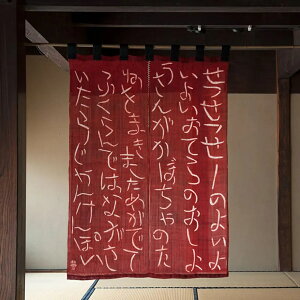 せっせっせーのよいよ
いよいおてらのおしょ
うさんがかぼちゃのた
ねをまきましためがでて
ふくらんではながさ
いたらじゃんけんぽい